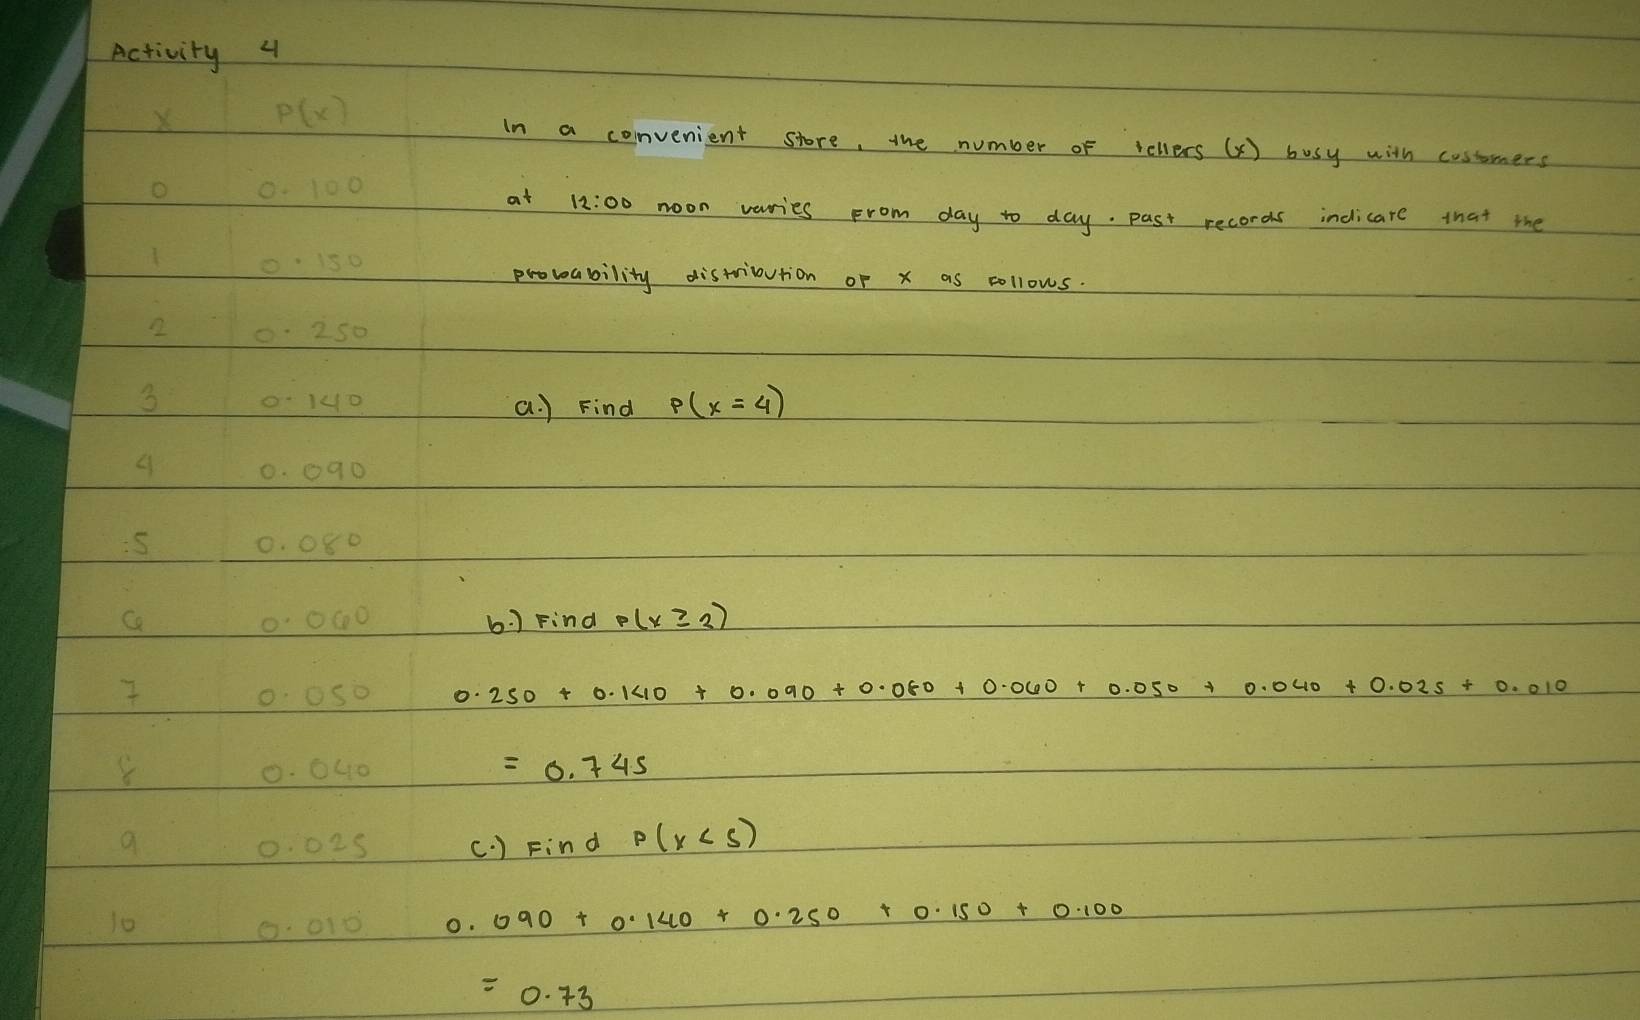 Activity 4
x P(x)
In a convenient store, the number of tellers (x) busy with customers
0 0.100
at 12:00 noon varies from day to day. past records indicate that the
1 0.150
probability distribution of x as follows.
2 0.250
3 0.140
a.) Find P(x = 4)
4 0.090
5 0.080
6 0.060
b.) Find P(x ≥ 2)
7 0.050
0.250 + 0.140 + 0.090 + 0.080 + 0.060 + 0.050 + 0.040 + 0.025 + 0.010
8 0.040
= 0.745
9 0.025
c.) Find P(x < 5)
10 0.010
0.090 + 0.140 + 0.250 + 0.150 + 0.100
= 0.73